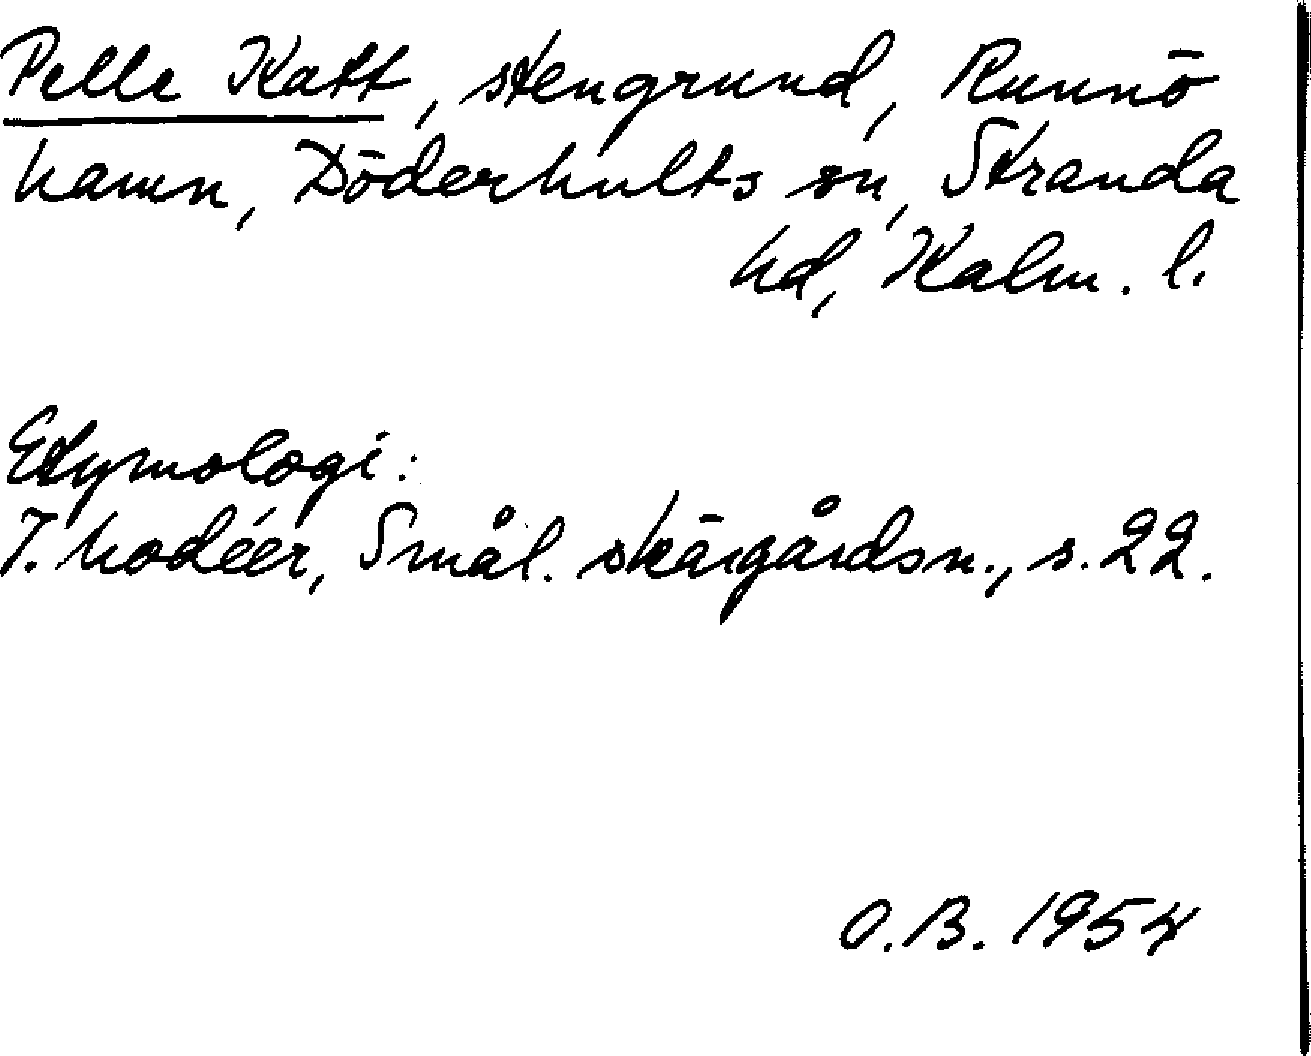 Pelle Katt, stengrund, Runnö
hamn, Döderhults sn, Stranda
hd, Kalm. l.
Etymologi:
I. Modéer, Smål. skärgårdsn., s. 22.
O.B. 1954